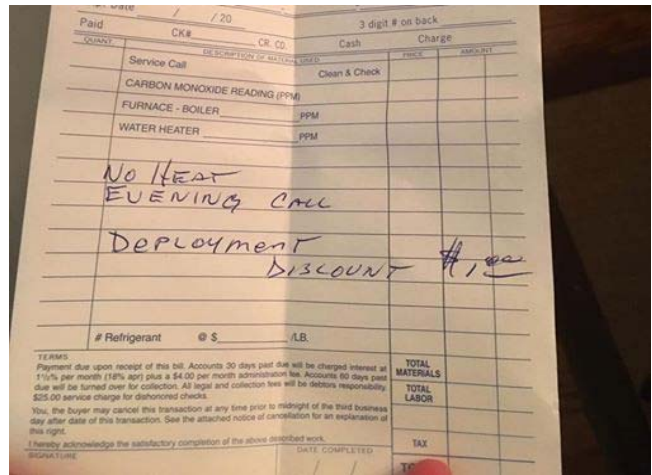 Date / / 20
3 digit # on back
Paid CK# CR. CD. Cash Charge
QUANT. DESCRIPTION OF MATERIAL USED PRICE AMOUNT
Service Call Clean & Check
CARBON MONOXIDE READING (PPM)
FURNACE - BOILER PPM
WATER HEATER PPM
NO HEAT
EVENING CALL
DEPLOYMENT
DISCOUNT $1,00
# Refrigerant @ $ /LB.
TERMS
Payment due upon receipt of this bill. Accounts 30 days past due will be charged interest at
1½% per month (18% apr) plus a $4.00 per month administration fee. Accounts 60 days past
due will be turned over for collection. All legal and collection fees will be debtors responsibility.
$25.00 service charge for dishonored checks.
You, the buyer may cancel this transaction at any time prior to midnight of the third business
day after date of this transaction. See the attached notice of cancellation for an explanation of
this right.
I hereby acknowledge the satisfactory completion of the above described work.
SIGNATURE DATE COMPLETED
/ /
TOTAL
MATERIALS
TOTAL
LABOR
TAX